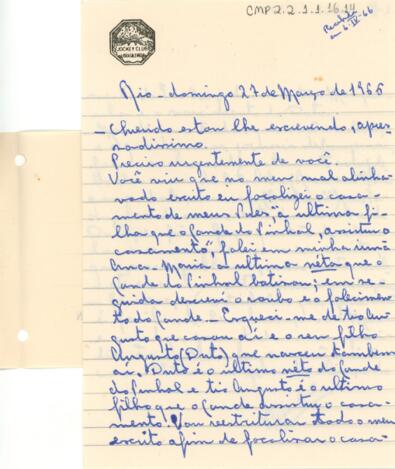 CMP 2.2.1.1.16.14
JOCKEY CLUB
em 6-IV-66
Rio - domingo 27 de Março de 1966
- Chuendo estou lhe escrevendo, apres
sadissimo.
Preciso urgentemente de você.
Você viu que no meu mal alinha-
vado escrito eu focalizei o casa-
mento de meus Paes, "a ultima fi-
lha que o Conde do Pinhal, assistiu o
casamento", falei em minha irmã
Ana-Maria a ultima néta que o
Conde do Pinhal batisou; em se-
guida descrevi o roubo e o falecimen-
to do Conde. - Esqueci-me de tio Au-
gusto que casou aí e o seu filho
Augusto (Duto) que nasceu tambem
aí. Duto é o ultimo néto do Conde
do Pinhal e tio Augusto é o ultimo
filho que o Conde assistiu o casa-
mento. Vou restruturar todo o meu
escrito afim de focalisar o casa-